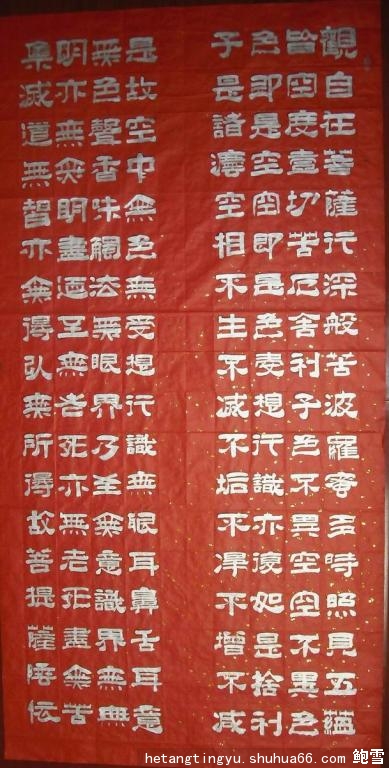 觀自在菩薩行深般苦波羅蜜多時照見五蘊
皆空度壹切苦厄舍利子色不異空空不異色
色即是空空即是色受想行識亦復如是捨利
子是諸灋空相不生不滅不垢不淨不增不减
是故空中無色無受想行識無眼耳鼻舌耳意
無色聲香味觸法無眼界乃至無意識界無無
明亦無無明盡迺至無老死亦無老死盡無苦
集滅道無智亦無得以無所得故菩提薩埵依
hetangtingyu.shuhua66.com 鲍雪